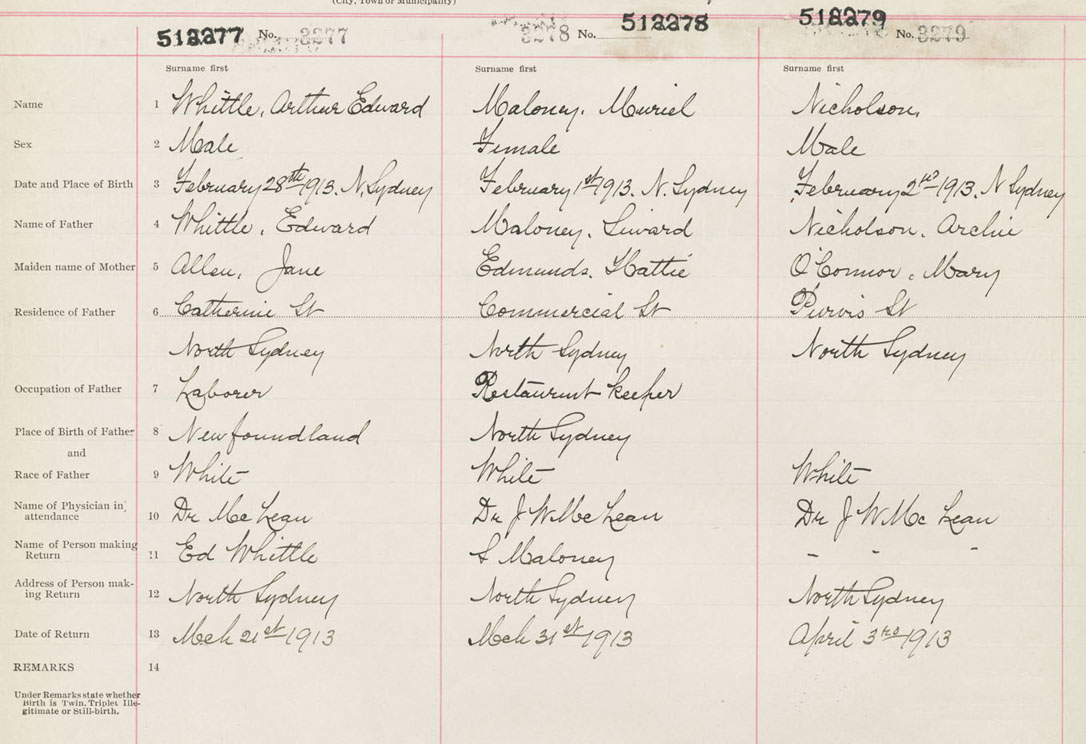 (City, Town or Municipality)
512277 No. 3277 3278 No. 512278 512279 No. 3279
Surname first Surname first Surname first
Name 1 Whittle, Arthur Edward Maloney, Muriel Nicholson,
Sex 2 Male Female Male
Date and Place of Birth 3 February 28th 1913. N Sydney February 1st 1913. N. Sydney February 2nd 1913. N Sydney
Name of Father 4 Whittle, Edward Maloney, Nicholson, Archie
Maiden name of Mother 5 Allen, Jane Edmunds, Hattie O'Connor, Mary
Residence of Father 6 Catherine St Commercial St Purvis St
North Sydney North Sydney North Sydney
Occupation of Father 7 Laborer Restaurant Keeper
Place of Birth of Father 8 Newfoundland North Sydney
and
Race of Father 9 White White White
Name of Physician in attendance 10 Dr McLean Dr J W McLean Dr J W McLean
Name of Person making Return 11 Ed Whittle S Maloney - - -
Address of Person making Return 12 North Sydney North Sydney North Sydney
Date of Return 13 Mch 21st 1913 Mch 31st 1913 April 3rd 1913
REMARKS 14
Under Remarks state whether
Birth is Twin, Triplet Ille-
gitimate or Still-birth.